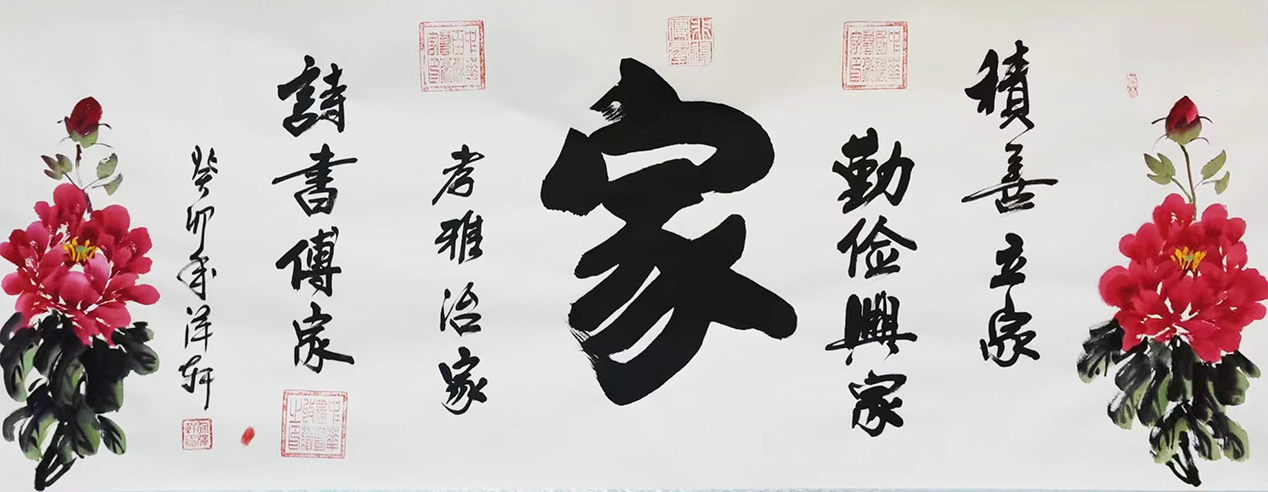 積善立家
勤儉興家
家
孝雅治家
詩書傳家
癸卯年洋軒